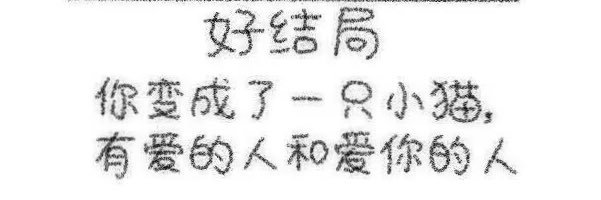 好结局
你变成了一只小猫,
有爱的人和爱你的人